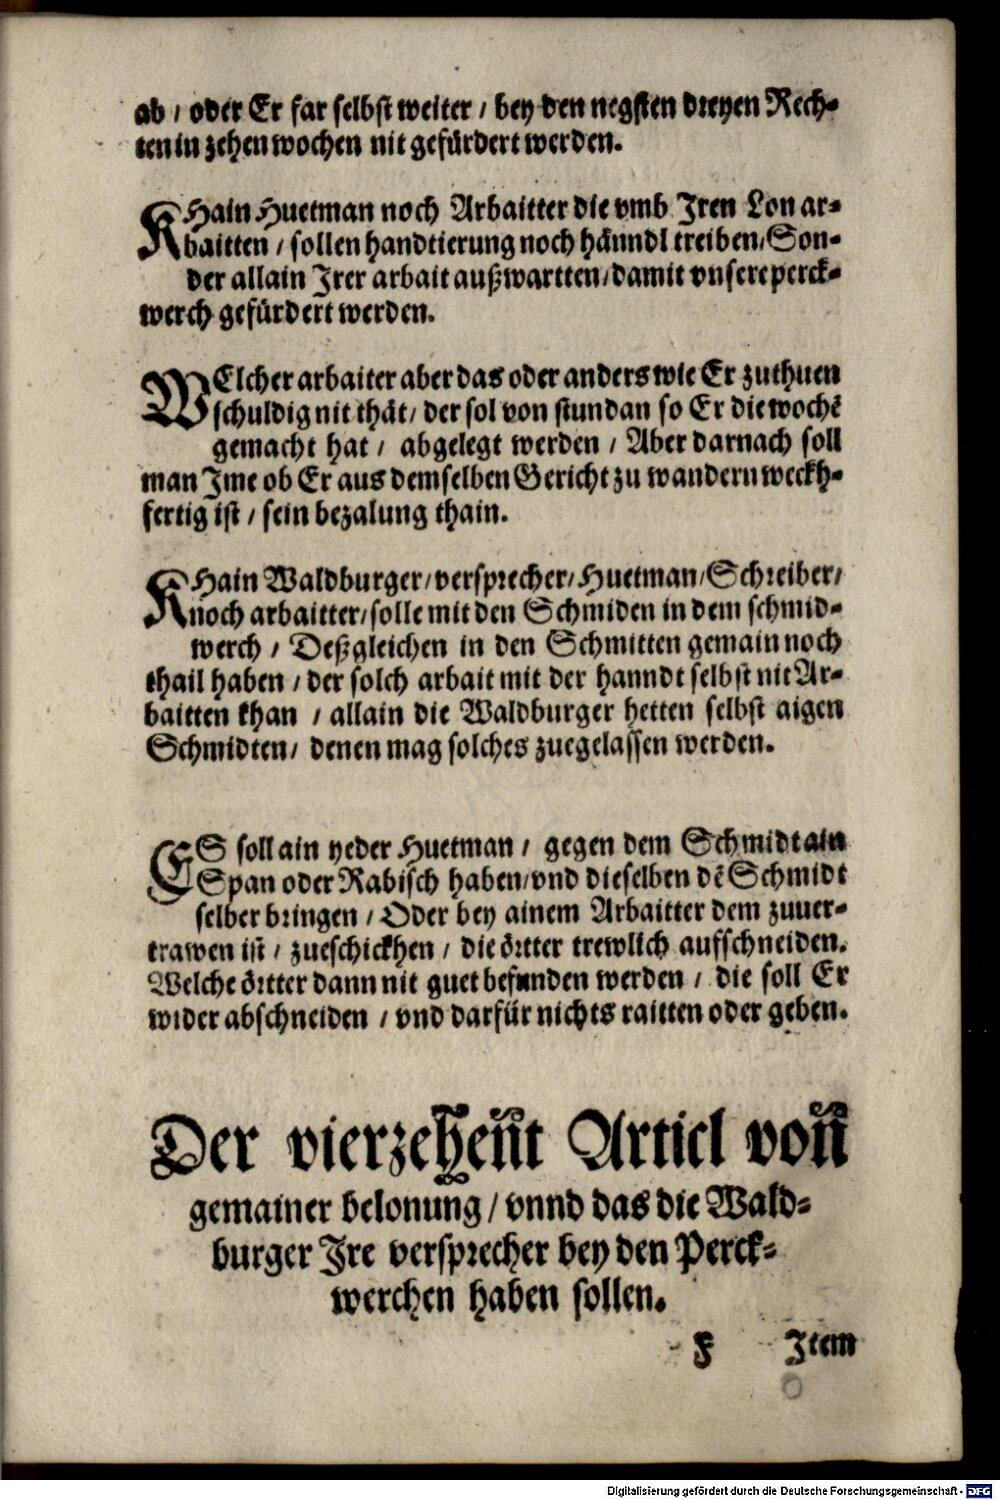 ab / oder Er far selbst weiter / bey den negsten dreyen Rech-
ten in zehen wochen nit gefürdert werden.
KHain Huetman noch Arbaitter die vmb Jren Lon ar-
baitten / sollen handtierung noch hänndl treiben / Son-
der allain Jrer arbait außwartten / damit vnsere perck-
werch gefürdert werden.
WElcher arbaiter aber das oder anders wie Er zuthuen
schuldig nit thät / der sol von stundan so Er die wochẽ
gemacht hat / abgelegt werden / Aber darnach soll
man Jme ob Er aus demselben Gericht zu wandern weckh-
fertig ist / sein bezalung thain.
KHain Waldburger / versprecher / Huetman / Schreiber /
noch arbaitter / solle mit den Schmiden in dem schmid-
werch / Deßgleichen in den Schmitten gemain noch
thail haben / der solch arbait mit der hanndt selbst nit Ar-
baitten khan / allain die Waldburger hetten selbst aigen
Schmidten / denen mag solches zuegelassen werden.
ES soll ain yeder Huetman / gegen dem Schmidt ain
Span oder Rabisch haben / vnd dieselben dẽ Schmidt
selber bringen / Oder bey ainem Arbaitter dem zuuer-
trawen ist / zueschickhen / die örtter trewlich aufschneiden.
Welche örtter dann nit guet befunden werden / die soll Er
wider abschneiden / vnd darfür nichts raitten oder geben.
Der vierzehen̄t Articl von̄
gemainer belonung / vnnd das die Wald-
burger Jre versprecher bey den Perck-
werchen haben sollen.
F Item
Digitalisierung gefördert durch die Deutsche Forschungsgemeinschaft - DFG